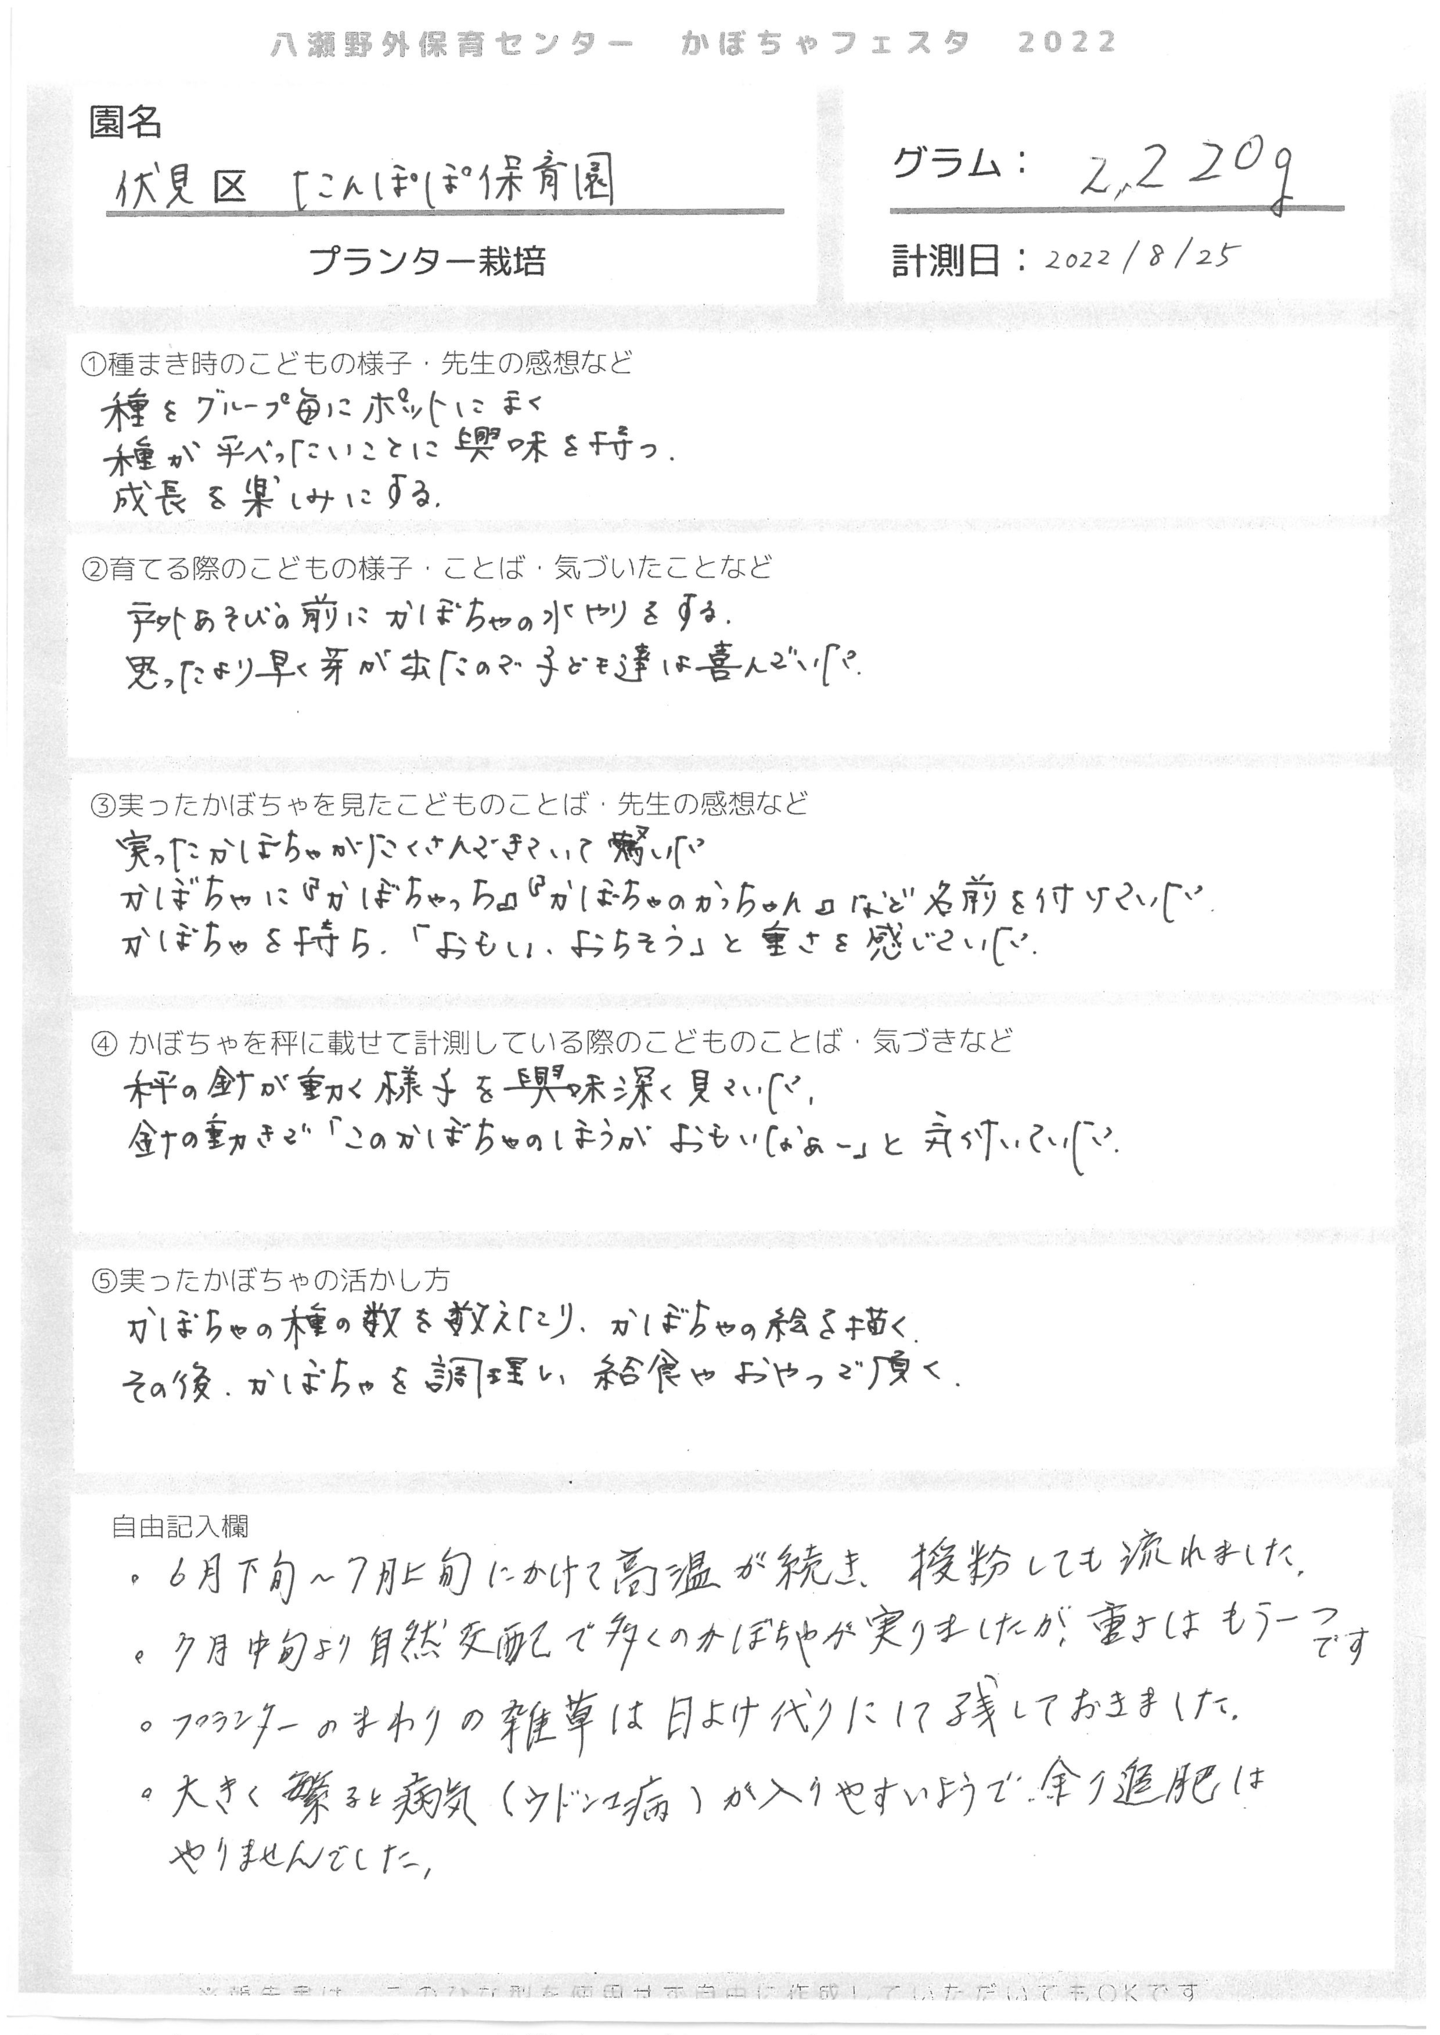 八瀬野外保育センター　かぼちゃフェスタ　2022
園名
伏見区 たんぽぽ保育園
プランター栽培
グラム： 2,220g
計測日：2022/8/25
①種まき時のこどもの様子・先生の感想など
種をグループ毎にポットにまく
種が平べったいことに興味を持つ.
成長を楽しみにする.
②育てる際のこどもの様子・ことば・気づいたことなど
戸外あそびの前にかぼちゃの水やりをする.
思ったより早く芽が出たので子ども達は喜んでいた.
③実ったかぼちゃを見たこどものことば・先生の感想など
実ったかぼちゃがたくさんできていて驚いた
かぼちゃに『かぼちゃっち』『かぼちゃのかっちゃん』など名前を付けていた.
かぼちゃを持ち、「おもい、おちそう」と重さを感じていた.
④ かぼちゃを秤に載せて計測している際のこどものことば・気づきなど
秤の針が動く様子を興味深く見ていた.
針の動きで「このかぼちゃのほうが おもいなぁー」と気付いていた.
⑤実ったかぼちゃの活かし方
かぼちゃの種の数を数えたり、かぼちゃの絵を描く.
その後、かぼちゃを調理し、給食やおやつで頂く.
自由記入欄
。6月下旬～7月上旬にかけて高温が続き、授粉しても流れました。
。7月中旬より自然交配で多くのかぼちゃが実りましたが、重さはもう一つ
です
。プランターのまわりの雑草は日よけ代りにして残しておきました。
。大きく繁ると病気（ウドンコ病）が入りやすいようで、余り追肥は
やりませんでした。
※報告書は、このひな型を使用せず自由に作成していただいてもOKです